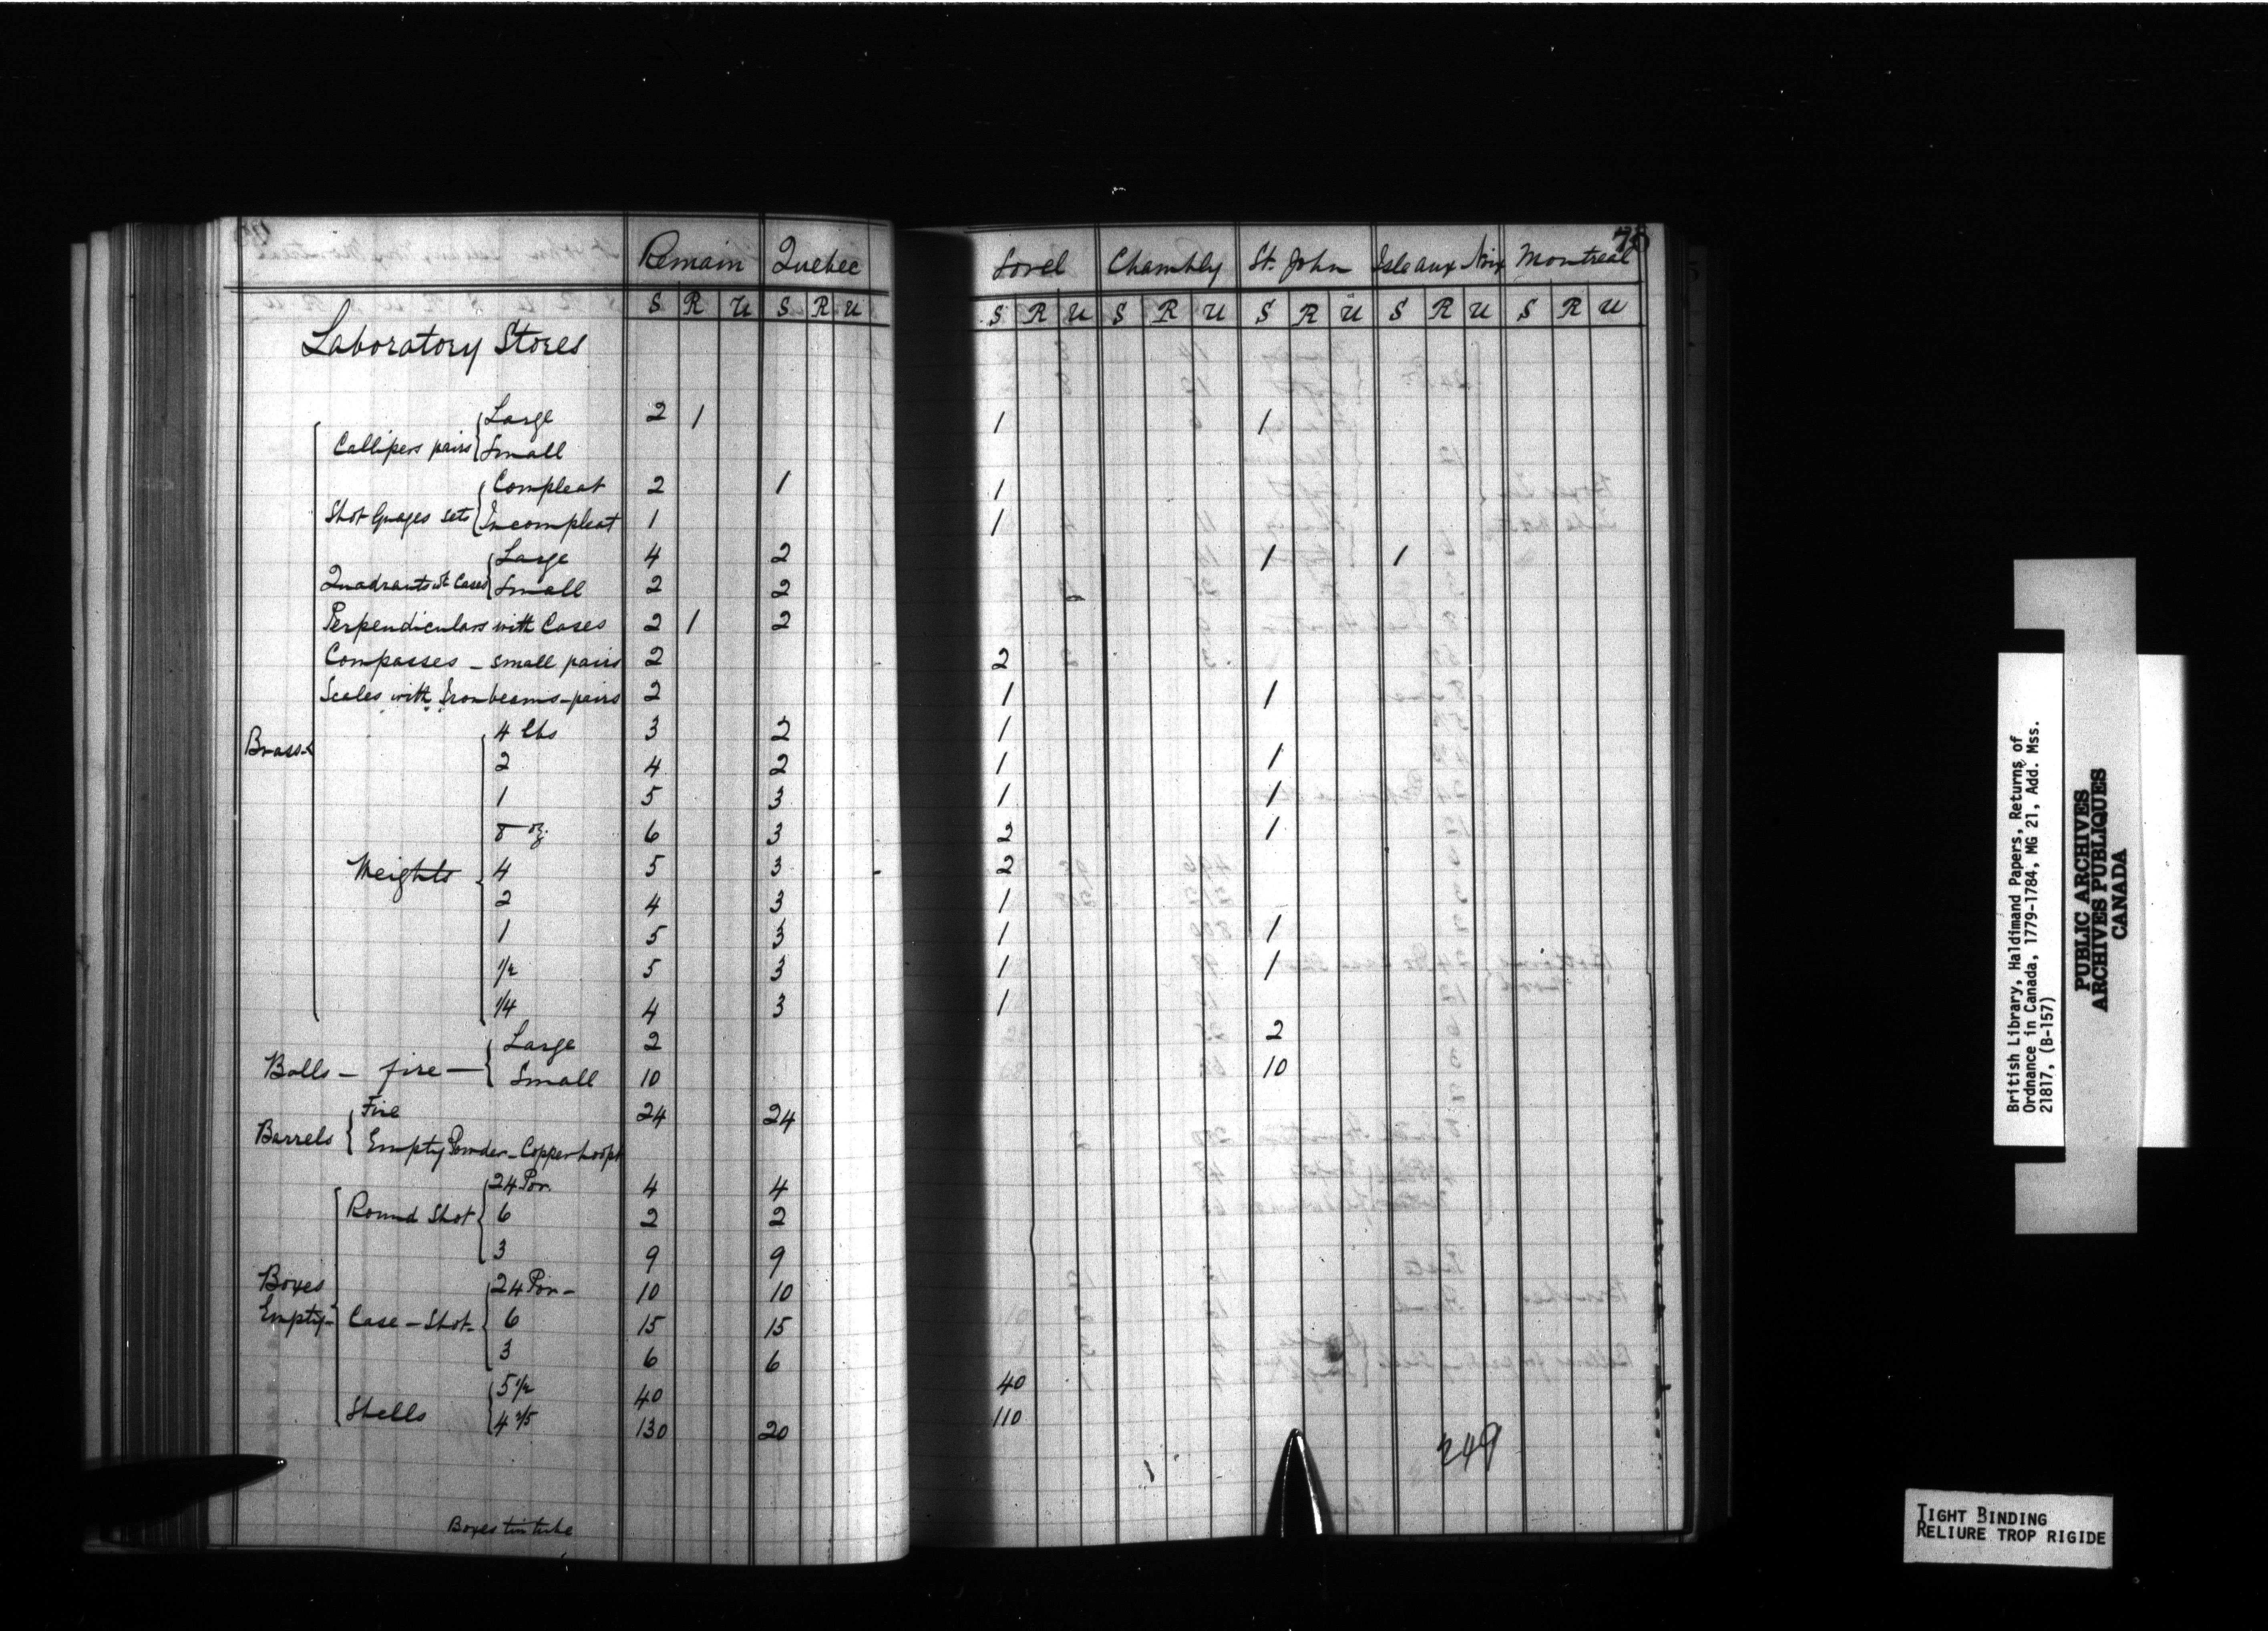 Remain Quebec Sorel Chambly St. John Isle aux Noix Montreal 78
S R U S R U S R U S R U S R U S R U S R U
Laboratory Stores
Large 2 1 1 1
Callipers pairs Small
Compleat 2 1 1
Shot Guages sets Incompleat 1 1
Large 4 2 1 1
Quadrants wt Cases Small 2 2
Perpendiculars with Cases 2 1 2
Compasses - small pairs 2 2
Scales with Iron beams - pairs 2 1 1
Brass 4 lbs 3 2 1
2 4 2 1 1
1 5 3 1 1
8 oz. 6 3 2 1
Weights 4 5 3 2
2 4 3 1
1 5 3 1 1
1/2 5 3 1 1
1/4 4 3 1
Large 2 2
Balls - fire - Small 10 10
Fire 24 24
Barrels Empty Powder - Copper hoops
24 Por. 4 4
Round Shot 6 2 2
3 9 9
Boxes 24 Por - 10 10
Empty - Case - Shot - 6 15 15
3 6 6
5 1/2 40 40
Shells 4 2/5 130 20 110
249
Boxes tin tube
British Library, Haldimand Papers, Returns of
Ordnance in Canada, 1779-1784, MG 21, Add. Mss.
21817, (B-157)
PUBLIC ARCHIVES
ARCHIVES PUBLIQUES
CANADA
TIGHT BINDING
RELIURE TROP RIGIDE